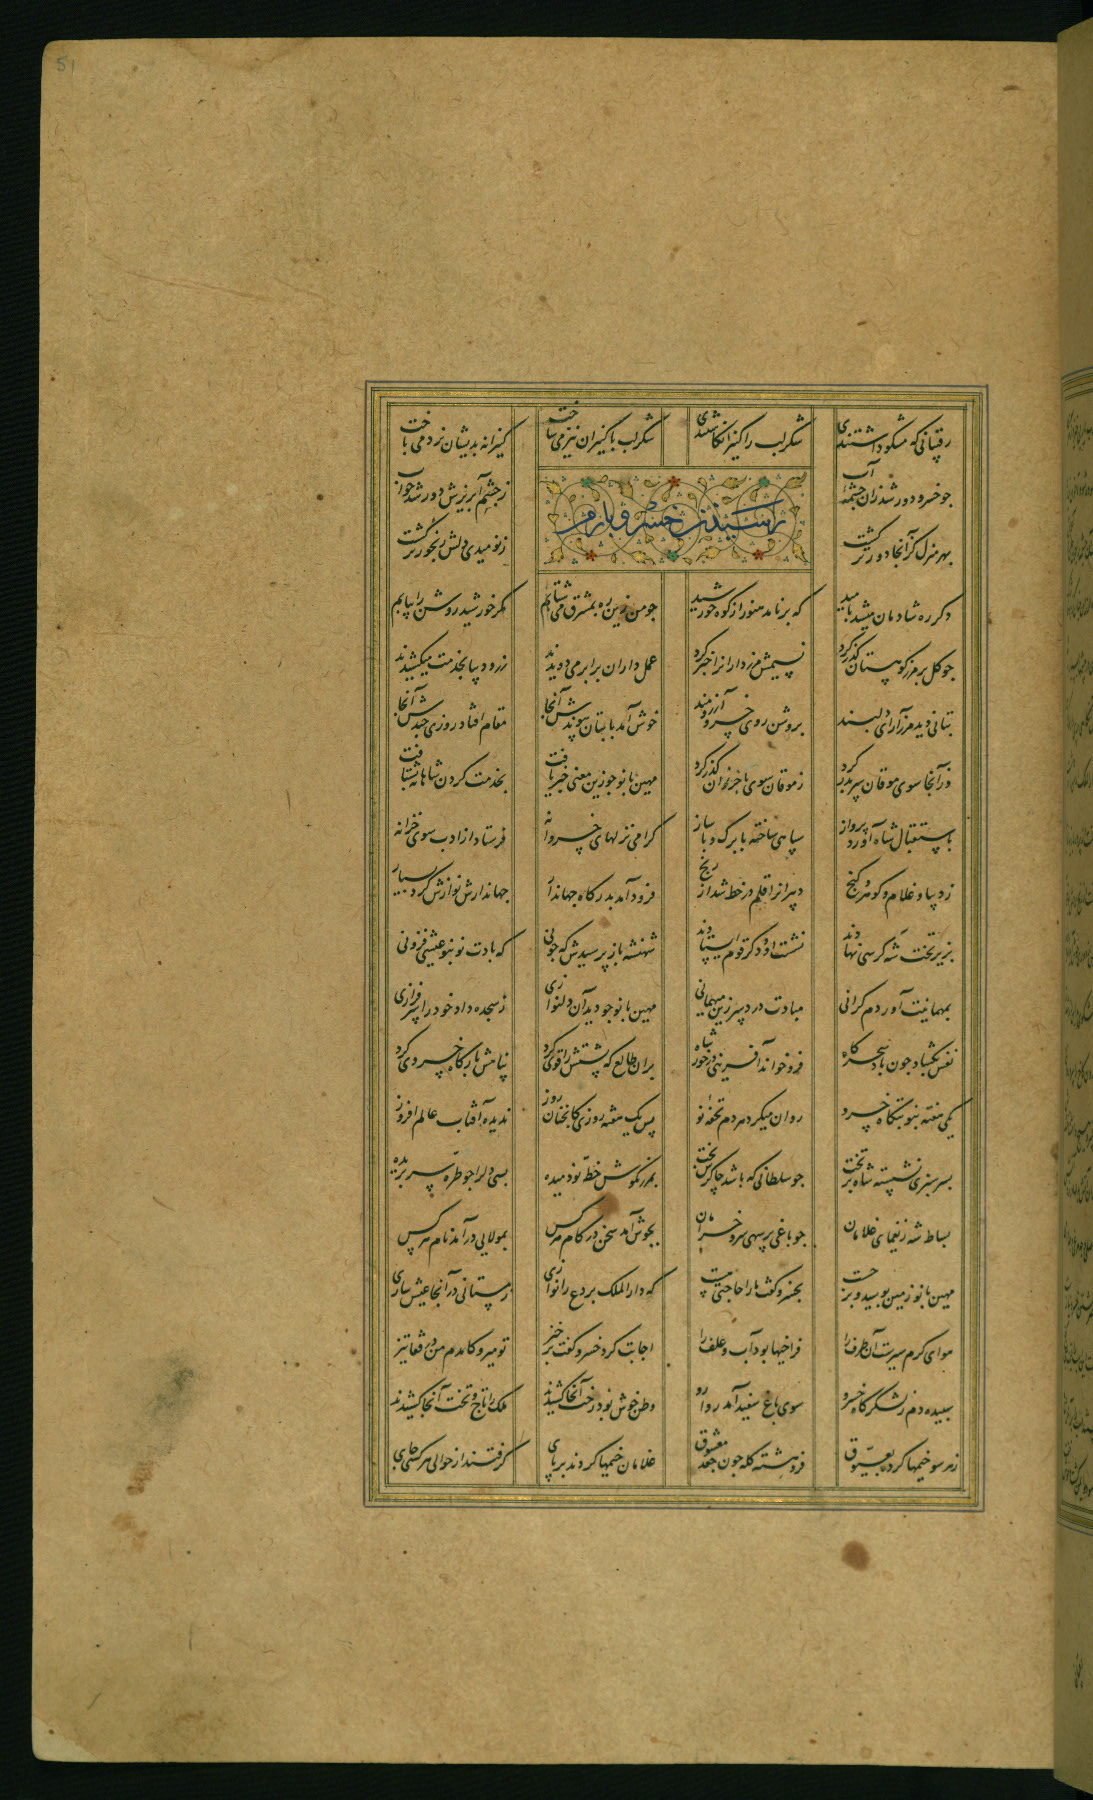 51
رقیبانی که مشکو داشتندی شکرلب را کنیز انکاشتندی شکرلب با کنیزان نیز می ساخت کنیزانه بدیشان نرد می باخت
جو خسرو دور شد زان جشمه آب زجشم آب ریزش دور شد خواب
رسیدن خسرو بارمن
بهر منزل کز آنجا دورتر کشت زنومیدی دلش رنجورتر کشت
دکر ره شادمان میشد بامید که برنامد هنوز از کوه خورشید جو من زین ره بمشرق می شتابم مکر خورشید روشن را بیابم
جو کل بر مرز کوهستان کذر کرد نسیمش مرزدارانرا خبر کرد عمل داران برابر می دویدند زر و دیبا بخدمت میکشیدند
بتانی دید بزم آرای دلبند بروشن روی خسرو آرزومند خوش آمد با بتان پیوندش آنجا مقام افتاد روزی جندش آنجا
وز آنجا سوی موقان سربدر کرد زموقان سوی باخرزان کذر کرد مهین بانو جو زین معنی خبر یافت بخدمت کردن شاهانه بشتافت
باستقبال شاه آورد پرواز سپاهی ساخته با برک و با ساز کرامی نزلهای خسروانه فرستاد از ادب سوی خزانه
ز دیبا و غلام و کوهر و کنج دبیرانرا قلم در خط شد از رنج فرود آمد بدرکاه جهاندار جهاندارش نوازش کرد بسیار
بزیر تخت شه کرسی نهادند نشست او و دکر قوم ایستادند شهنشه باز پرسیدش که جونی که بادت نو بنو عیشی فزونی
بمهمانیت آوردم کرانی مبادت درد سر زین میهمانی مهین بانو جو دید آن دلنوازی زسجده داد خود را سرفرازی
نفس بکشاد جون باد سحرکاه فرو خواند آفرینی در خور شاه بران طالع که پشتش را قوی کرد پناهش بارکاه خسروی کرد
یکی هفته بنوبتکاه خسرو روان میکرد هر دم تحفه نو پس یک هفته روزی کانجنان روز ندیده آفتاب عالم افروز
بسرسبزی نشسته شاه بر تخت جو سلطانی که باشد چاکرش بخت بمرزنکوش خط نو دمیده بسی دل را جو طره سر بریده
بساط شه زیغمای غلامان جو باغی پر سهی سرو خرامان بجوش آمد سخن در کام هر کس بمولایی درآمد نام هر کس
مهین بانو زمین بوسید و برجست بخسرو کفت ما را حاجتی هست که دارالملک بردع را نوازی زمستانی در آنجا عیش سازی
هوای کرم سیرست آن طرف را فراخیها بود آب و علف را اجابت کرد خسرو کفت برخیز تو میرو کامدم من در قفا تیز
سپیده دم ز لشکرکاه خسرو سوی باغ سفید آمد روارو وطن خوش بود رخت آنجا کشیدند ملک را تاج و تخت آنجا کشیدند
زهر سو خیمها کرده بعیوق فرو هشته کله جون جعد معشوق غلامان خیمها کردند بر پای کرفتند از حوالی هر کسی جای